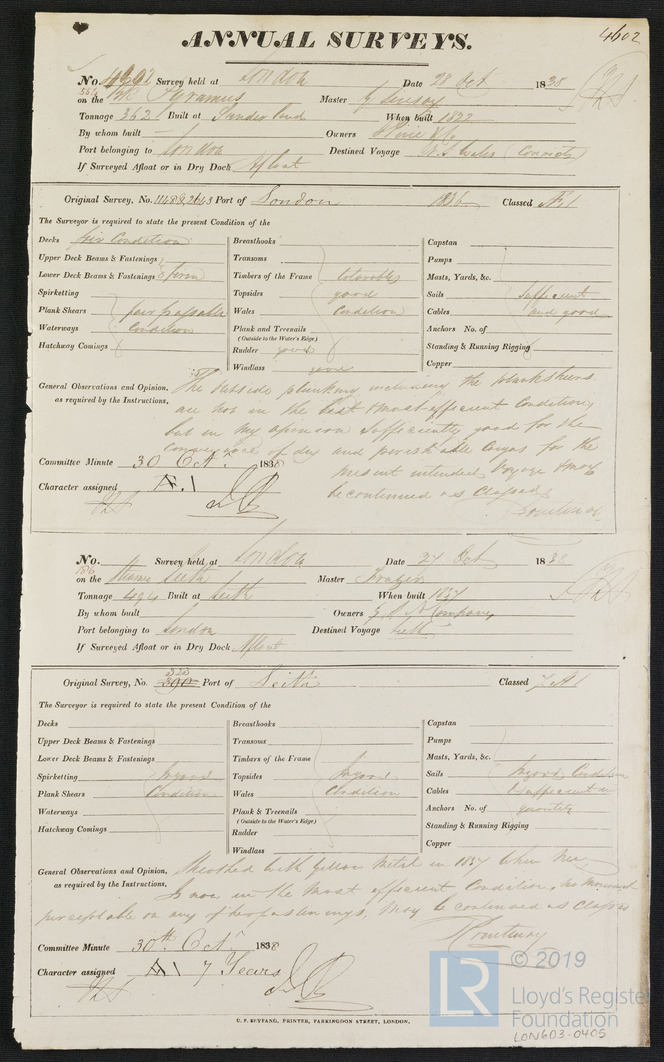 4602
ANNUAL SURVEYS.
No. 4602 Survey held at London Date 28 Oct 1838
on the Bk Pyramus Master G
Tonnage 362 Built at Sunderland When built 1822
By whom built — Owners
Port belonging to London Destined Voyage N. S. Wales (Convicts)
If Surveyed Afloat or in Dry Dock Afloat
Original Survey, No. Port of London 1836 Classed Æ 1
The Surveyor is required to state the present Condition of the
Decks fair Condition Breasthooks Capstan
Upper Deck Beams & Fastenings Transoms Pumps
Lower Deck Beams & Fastenings firm Timbers of the Frame tolerably Masts, Yards, &c.
Spirketting Topsides good Sails Sufficient
Plank Shears fair passable Wales Condition Cables and good
Waterways Condition Plank and Treenails Anchors No. of
(Outside to the Water's Edge)
Hatchway Comings Rudder good Standing & Running Rigging
Windlass good Copper
General Observations and Opinion, The outside planking including the planksheers
as required by the Instructions, are not in the best & most efficient Condition,
but in my opinion Sufficiently good for the
conveyance of dry and perishable Cargos for the
present intended Voyage & may
be continued as Classed
Courtenay
Committee Minute 30 Octr. 1838
Character assigned Æ. 1
No. Survey held at London Date 27 Oct 1838
on the Steamer Leith Master Frazer
Tonnage 494 Built at Leith When built 1837
By whom built Owners Company
Port belonging to London Destined Voyage Leith
If Surveyed Afloat or in Dry Dock Afloat
Original Survey, No. Port of Leith Classed 7 A 1
The Surveyor is required to state the present Condition of the
Decks Breasthooks Capstan
Upper Deck Beams & Fastenings Transoms Pumps
Lower Deck Beams & Fastenings Timbers of the Frame Masts, Yards, &c.
Spirketting In good Topsides In good Sails In good Condition
Plank Shears Condition Wales Condition Cables & sufficient in
Waterways Plank & Treenails Anchors No. of quantity
(Outside to the Water's Edge)
Hatchway Comings Rudder Standing & Running Rigging
Windlass Copper
General Observations and Opinion, Sheathed with Yellow Metal in 1837 when New,
as required by the Instructions, Is now in the most efficient Condition, no movement
perceptable on any of her fastenings, May be continued as Classed
Courtenay
Committee Minute 30th. Octr. 1838
Character assigned A 1 7 Years
C. F. SEYFANG, PRINTER, FARRINGDON STREET, LONDON.
LR © 2019
Lloyd's Register
Foundation
LON603-0405